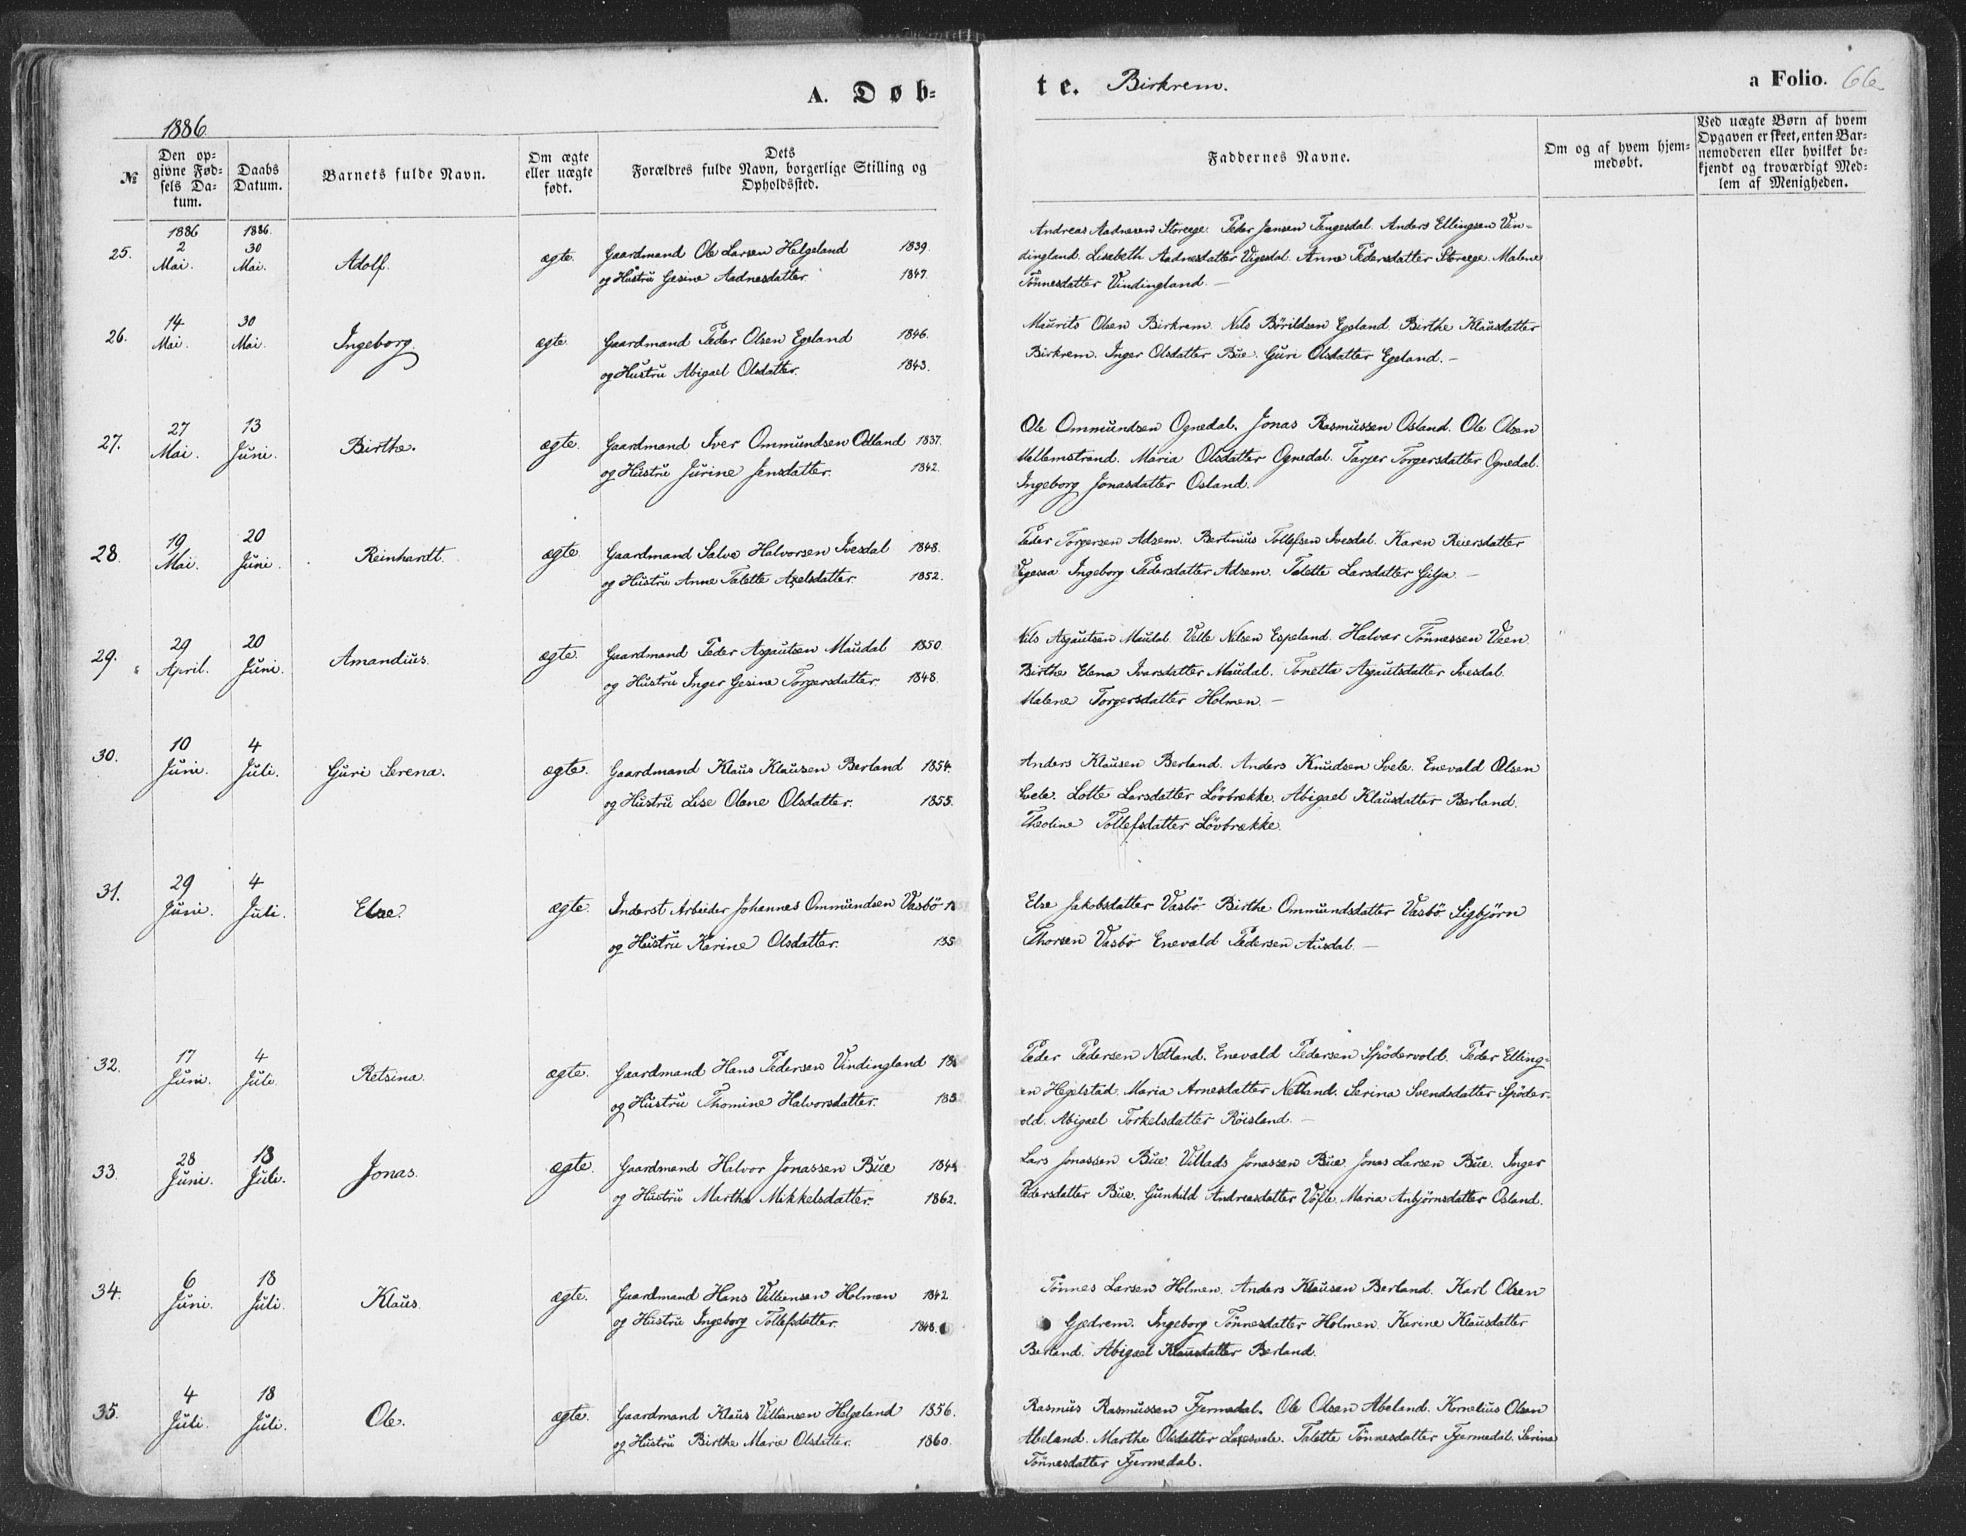 A. Døb=
te. Birkrem.
a Folio. 66
1886
№
Den op=
givne Fød=
sels Da=
tum.
Daabs
Datum.
Barnets fulde Navn.
Om ægte
eller uægte
født.
Dets
Forældres fulde Navn, borgerlige Stilling og
Opholdssted.
Faddernes Navne.
Om og af hvem hjem=
medøbt.
Ved uægte Børn af hvem
Opgaven er skeet, enten Bar=
nemoderen eller hvilket be=
kjendt og troværdigt Med=
lem af Menigheden.
1886 1886.
25. 2 Mai. 30 Mai. Adolf. ægte. Gaardmand Ole Larsen Helgeland 1839.
og Hustru Gesine Aadnesdatter. 1847.
Andreas Aadnesen Storege. Peder Jansen Tengesdal. Anders Ellingsen Vin=
dingland. Lisebeth Aadnesdatter Vigesdal. Anne Pedersdatter Storege. Malene
Tønnesdatter Vindingland. —
26. 14 Mai. 30 Mai. Ingeborg. ægte. Gaardmand Peder Olsen Egeland 1846.
og Hustru Abigael Olsdatter. 1843.
Maurits Olsen Birkrem. Nils Børildsen Egeland. Birthe Klausdatter
Birkrem. Inger Olsdatter Bue. Guri Olsdatter Egeland. —
27. 27 Mai. 13 Juni. Birthe. ægte. Gaardmand Iver Ommundsen Odland 1837.
og Hustru Jurine Jensdatter. 1842.
Ole Ommundsen Ognedal. Jonas Rasmussen Osland. Ole Olsen
Mellemstrand. Maria Olsdatter Ognedal. Tarjer Torgersdatter Ognedal.
Ingeborg Jonasdatter Osland.
28. 19 Mai. 20 Juni. Reinhardt. ægte. Gaardmand Salve Halvorsen Ivesdal 1848.
og Hustru Anne Talette Axelsdatter. 1852.
Peder Torgersen Adsem. Bertinius Tollefsen Ivesdal. Karen Reiersdatter
Vegesaa Ingeborg Pedersdatter Adsem. Talette Larsdatter Gilja. —
29. 29 April. 20 Juni. Amandius. ægte. Gaardmand Peder Asgautsen Maudal 1850.
og Hustru Inger Gesine Torgersdatter. 1848.
Nils Asgautsen Maudal. Velle Nilsen Espeland. Halvar Tønnessen Veen.
Birthe Elena Ivarsdatter Maudal. Tonetta Asgautsdatter Ivesdal.
Malene Torgersdatter Holmen. —
30. 10 Juni. 4 Juli. Guri Serena. ægte. Gaardmand Klaus Klausen Berland 1854.
og Hustru Lise Olene Olsdatter. 1855.
Anders Klausen Berland. Anders Knudsen Svele. Enevald Olsen
Svele. Lotte Larsdatter Løvbrække. Abigael Klausdatter Berland.
Theoline Tollefsdatter Løvbrække.
31. 29 Juni. 4 Juli. Else. ægte. Inderst Arbeider Johannes Ommundsen Vasbø
og Hustru Karine Olsdatter.
Else Jakobsdatter Vasbø Birthe Ommundsdatter Vasbø Sigbjørn
Thorsen Vasbø Enevald Pedersen Ausdal. —
32. 17 Juni. 4 Juli. Retsina. ægte. Gaardmand Hans Pedersen Vindingland
og Hustru Thomine Halvorsdatter.
Peder Pedersen Netland. Enevald Pedersen Spødervold. Peder Elling=
en Hegelstad. Maria Arnesdatter Netland. Serina Svendsdatter Spøder-
old. Abigael Torkelsdatter Røisland. —
33. 28 Juni. 18 Juli. Jonas. ægte. Gaardmand Halvor Jonassen Bue 1844
og Hustru Martha Mikkelsdatter. 1862.
Lars Jonassen Bue. Villads Jonassen Bue. Jonas Larsen Bue. Inger
Pedersdatter Bue. Gunhild Andreasdatter Vofte. Maria Anbjørnsdatter Osland.
34. 6 Juni. 18 Juli. Klaus. ægte. Gaardmand Hans Villiensen Holmen 1842
og Hustru Ingeborg Tollefsdatter. 1848.
Tønnes Larsen Holmen. Anders Klausen Berland. Karl Olsen
Gjedrem. Ingeborg Tønnesdatter Holmen. Karine Klausdatter
Berland. Abigael Klausdatter Berland.
35. 4 Juli. 18 Juli. Ole. ægte. Gaardmand Klaus Villumsen Helgeland 1856.
og Hustru Birthe Marie Olsdatter. 1860.
Rasmus Rasmussen Fjermedal. Ole Olsen Abeland. Kornelius Olsen
Abeland. Marthe Olsdatter Laxesvele. Talette Tønnesdatter Fjermedal. Serina
Tønnesdatter Fjermedal.